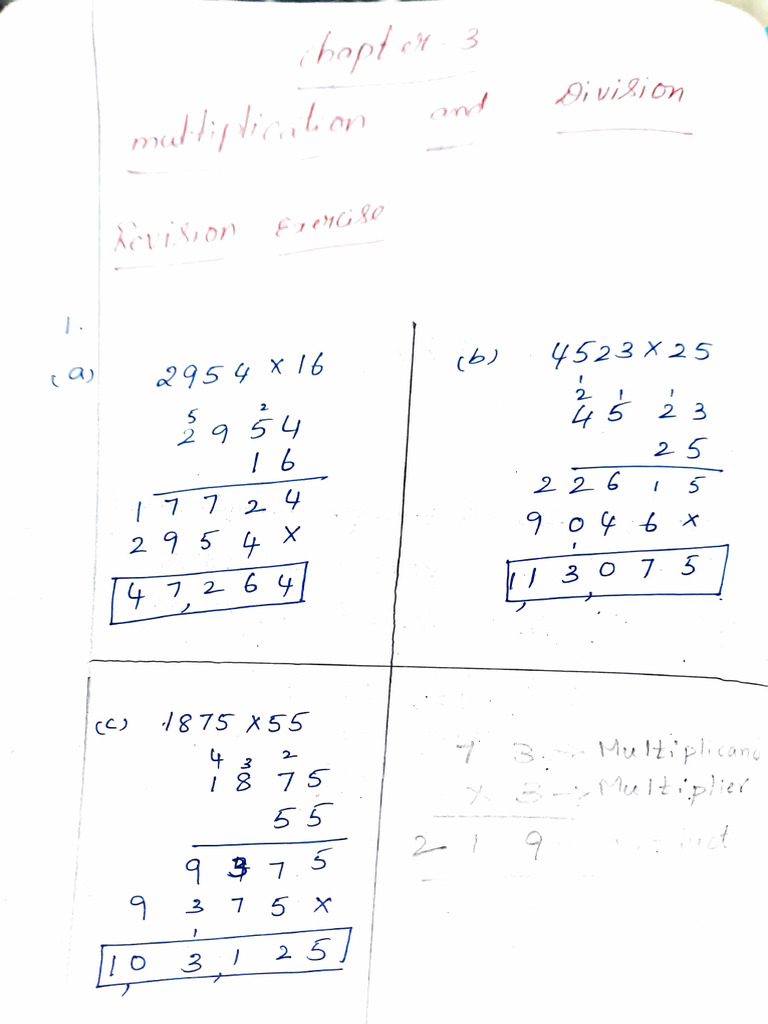 Chapter 3
Multiplication and Division
Revision Exercise
1.
(a) 2954 × 16
5 2
2 9 5 4
1 6
1 7 7 2 4
2 9 5 4 ×
4 7, 2 6 4
(b) 4523 × 25
1
2 1 1
4 5 2 3
2 5
2 2 6 1 5
9 0 4 6 ×
1
1, 1 3, 0 7 5
(c) 1875 × 55
4 3 2
1 8 7 5
5 5
9 3 7 5
9 3 7 5 ×
1
1, 0 3, 1 2 5
7 3 → Multiplicand
× 3 → Multiplier
2 1 9